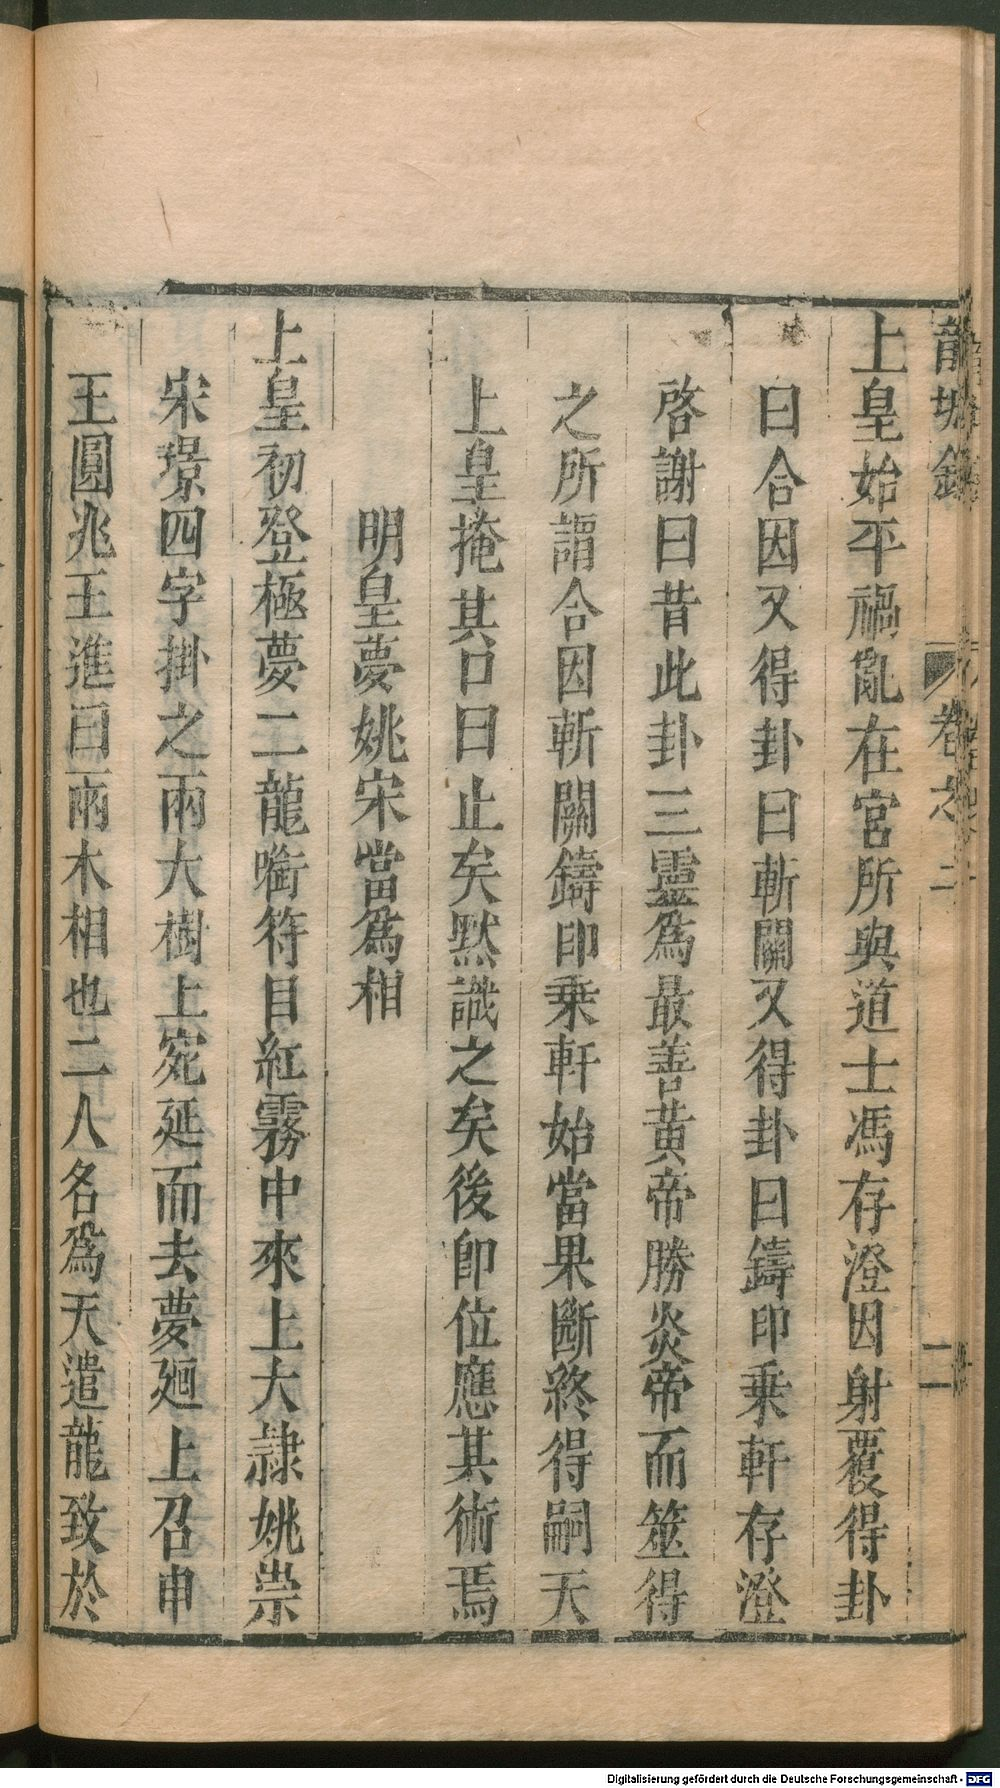 龍城錄 卷之二 二
上皇始平禍亂在宮所與道士馮存澄因射覆得卦
曰合因又得卦曰斬關又得卦曰鑄印乗軒存澄
啓謝曰昔此卦三靈爲最善黄帝勝炎帝而筮得
之所謂合因斬關鑄印乗軒始當果斷終得嗣天
上皇掩其口曰止矣默識之矣後卽位應其術焉
明皇夢姚宋當爲相
上皇初登極夢二龍啣符自紅霧中來上大隷姚崇
宋璟四字掛之兩大樹上宛延而去夢廻上召申
王圓兆王進曰兩木相也二人名爲天遣龍致於
Digitalisierung gefördert durch die Deutsche Forschungsgemeinschaft - DFG